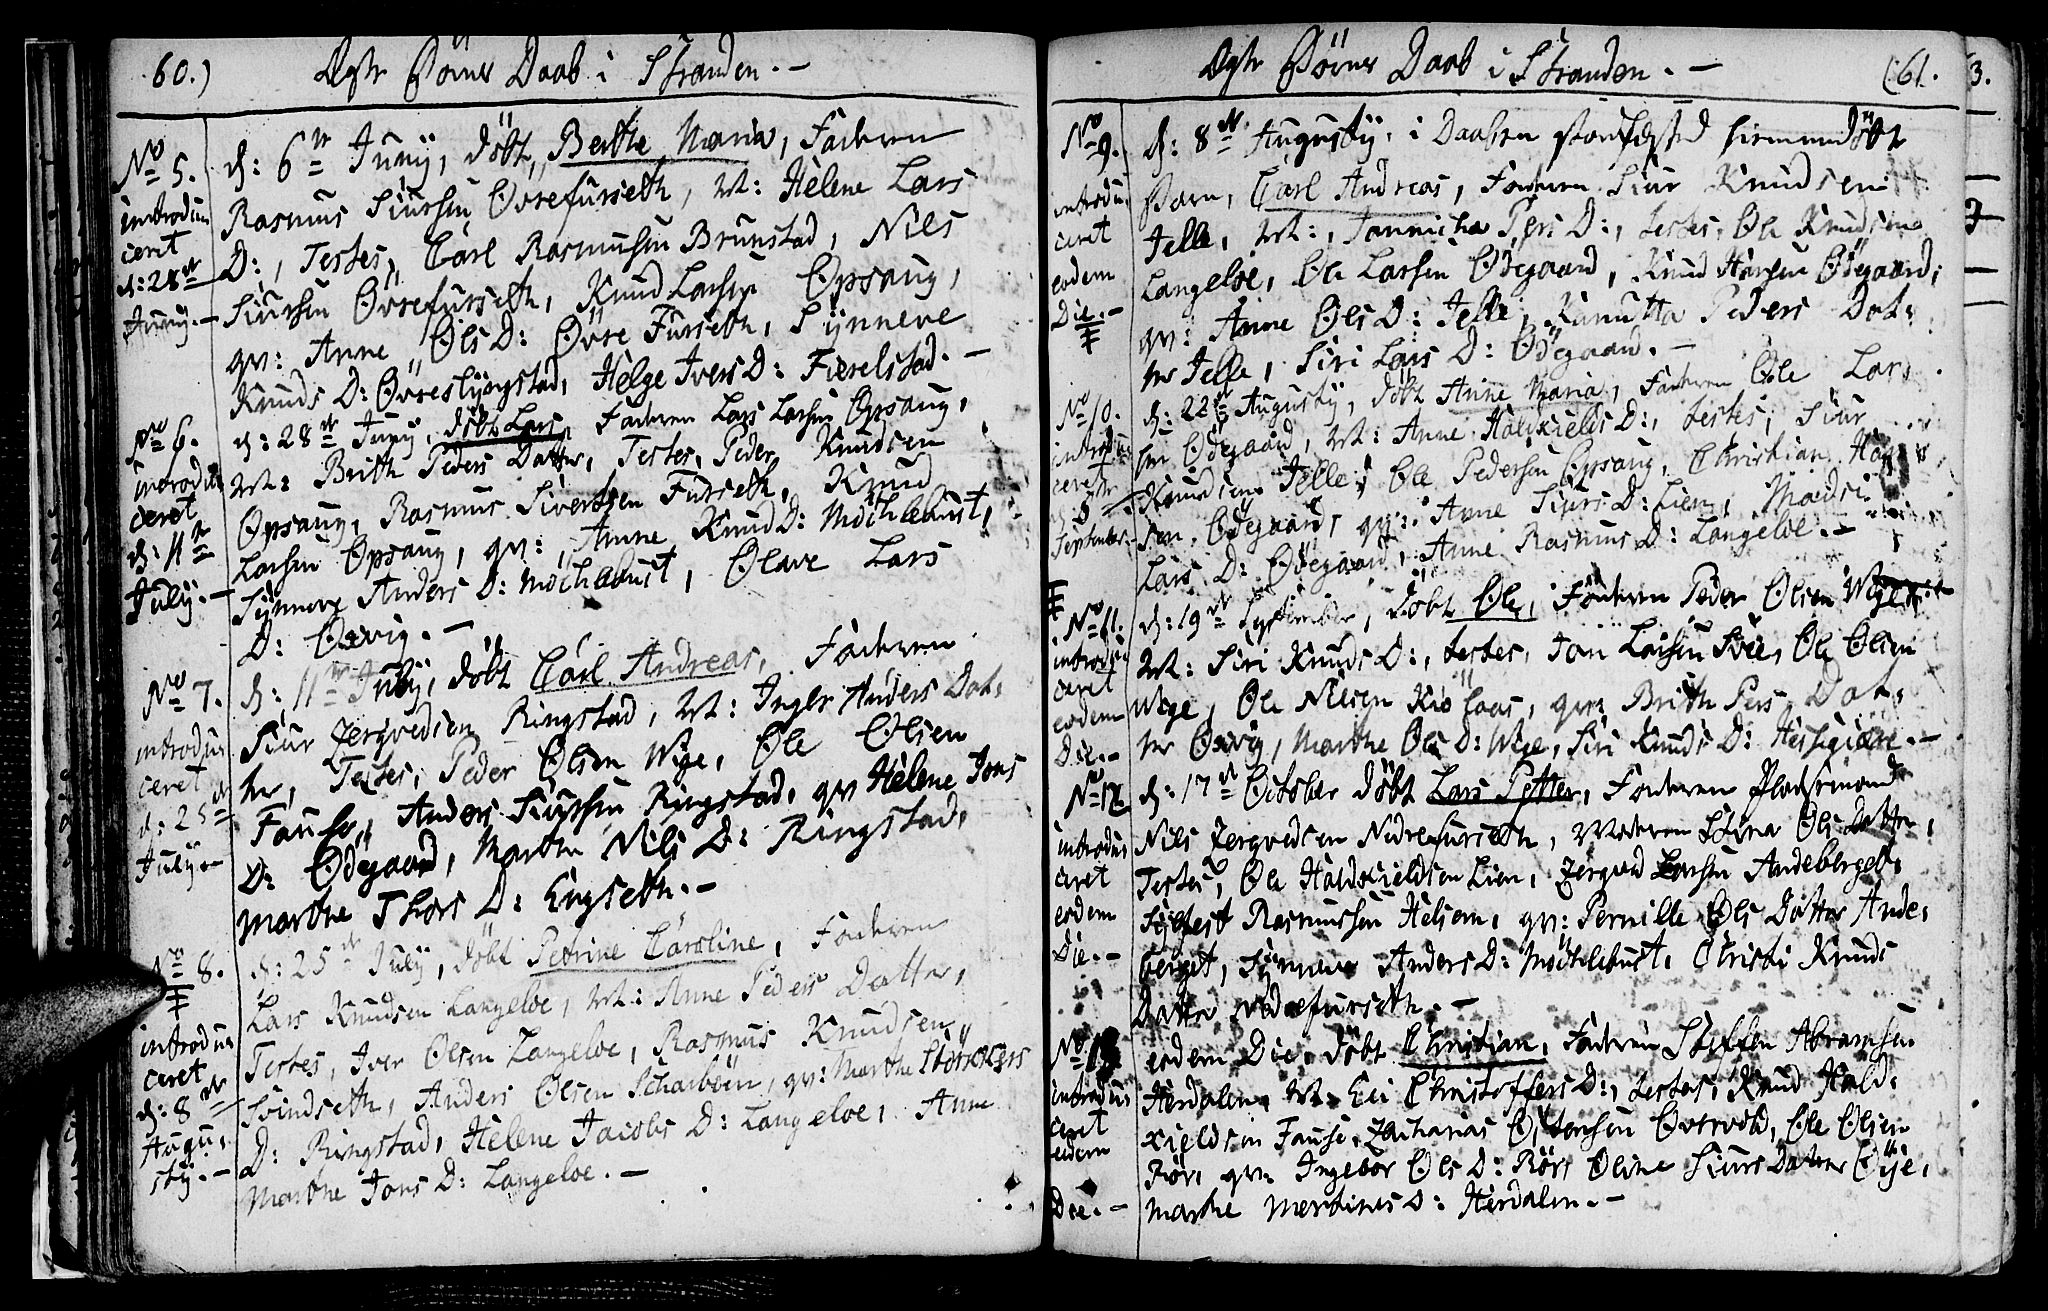 60.) Ægte Børns Daab i Stranden. -
No 5.
introdu-
ceret
d: 28de
Juny. -
d: 6te Juny, døbt, Berthe Maria, Faderen
Rasmus Siursen Øvrefurseth, M: Helene Lars
D:, Testes, Carl Rasmusen Brunstad, Nils
Siursen Øvrefurseth, Knud Larsen Opsaug,
qv: Anne Ols D: Øvre Furseth, Synneve
Knuds D: Øvreslyngstad, Helge Ivers D: Fierelstad. -
No 6.
introdu-
ceret
d: 11te
July. -
d: 28de Juny, døbt Lars, Faderen Lars Larsen Opsaug,
M: Brith Peders Datter, Testes, Peder Knudsen
Opsaug, Rasmus Sivertsen Furseth, Knud
Larsen Opsaug, qv:, Anne Knud D: Møchlebust,
Synneve Anders D: Møchlebust, Olave Lars
D: Osvig. -
No 7.
introdu-
ceret
d: 25de
July. -
d: 11te July, døbt Carl Andreas, Faderen
Siur Zergvedsen Ringstad, M: Inger Anders Dat-
ter, Testes, Peder Olsen Wige, Ole Olsen
Fause, Anders Siursen Ringstad, qv Helene Jons
D: Ødegaard, Marthe Nils D: Ringstad,
Marthe Thors D: Engseth. -
No 8.
introdu-
ceret
d: 8de
Augu-
sty. -
d: 25de July, døbt Petrine Caroline, Faderen
Lars Knudsen Langeloe, M: Anne Peders Datter,
Testes, Iver Olsen Langeloe, Rasmus Knudsen
Svindseth, Anders Olsen Scharbøen, qv: Marthe Størkers
D: Ringstad, Helene Jacobs D: Langeloe, Anne
Marthe Jons D: Langeloe. -
Ægte Børns Daab i Stranden. - (61.
No 9.
introdu-
ceret
eodem
Die. -
d: 8de Augusty, i Daaben stadfæsted hiemmedøbt
Barn, Carl Andreas, Faderen Siur Knudsen
Jelle, M:, Jannicha Pers D:, testes, Ole Knudsen
Langeloe, Ole Larsen Ødegaard, Knud Hansen Ødegaard,
qv: Anne Ols D: Jelle, Kanutta Peders Dat-
ter Jelle, Siri Lars D: Ødegaard. -
No 10.
introdu-
ceret
5te
September. -
d: 22de Augusty, døbt Anne Maria, Faderen Ole Lar-
sen Ødegaard, M: Anne Haldkields D:, testes, Siur
Knudsen Jelle, Ole Pedersen Opsaug, Christian Han-
sen Ødegaard, qv: Anne Siurs D: Lien, Madsi
Lars D: Ødegaard, Anne Rasmus D: Langeloe. -
No 11.
introdu-
ceret
eodem
Die. -
d: 19de September, døbt Ole, Faderen Peder Olsen Wige
M: Siri Knuds D:, testes, Jon Larsen Svie, Ole Olsen
Wige, Ole Nilsen Kiølaas, qv: Brith Pers Dat-
ter Osvig, Marthe Ols D: Wige, Siri Knuds D: Hessgiære. -
No 12
introdu-
ceret
eodem
Die. -
d: 17de October døbt Lars Petter, Faderen Pladsmand
Nils Zergvedsen Nedrefurseth, Moderen Stina Ols Datter,
Testes, Ole Haldkieldsen Lien, Zergved Larsen Andeberget,
Sylfest Rasmussen Helsem, qv: Pernille Ols Datter Ande-
berget, Synneve Anders D: Møchlebust, Christi Knuds
Datter Nedrefurseth. -
No 13
introdu-
ceret
eodem
Die. -
eodem Die, døbt Christian, Faderen Steffen Abramsen
Herdalen, M: Eli Christoffers D:, testes, Knud Hald-
kieldsen Fause, Zacharias Johnsen Overvold, Ole Olsen
Rør, qv: Ingebor Ols D: Rør, Oline Siurs Datter Øje,
Marthe Martinus D: Herdalen. -